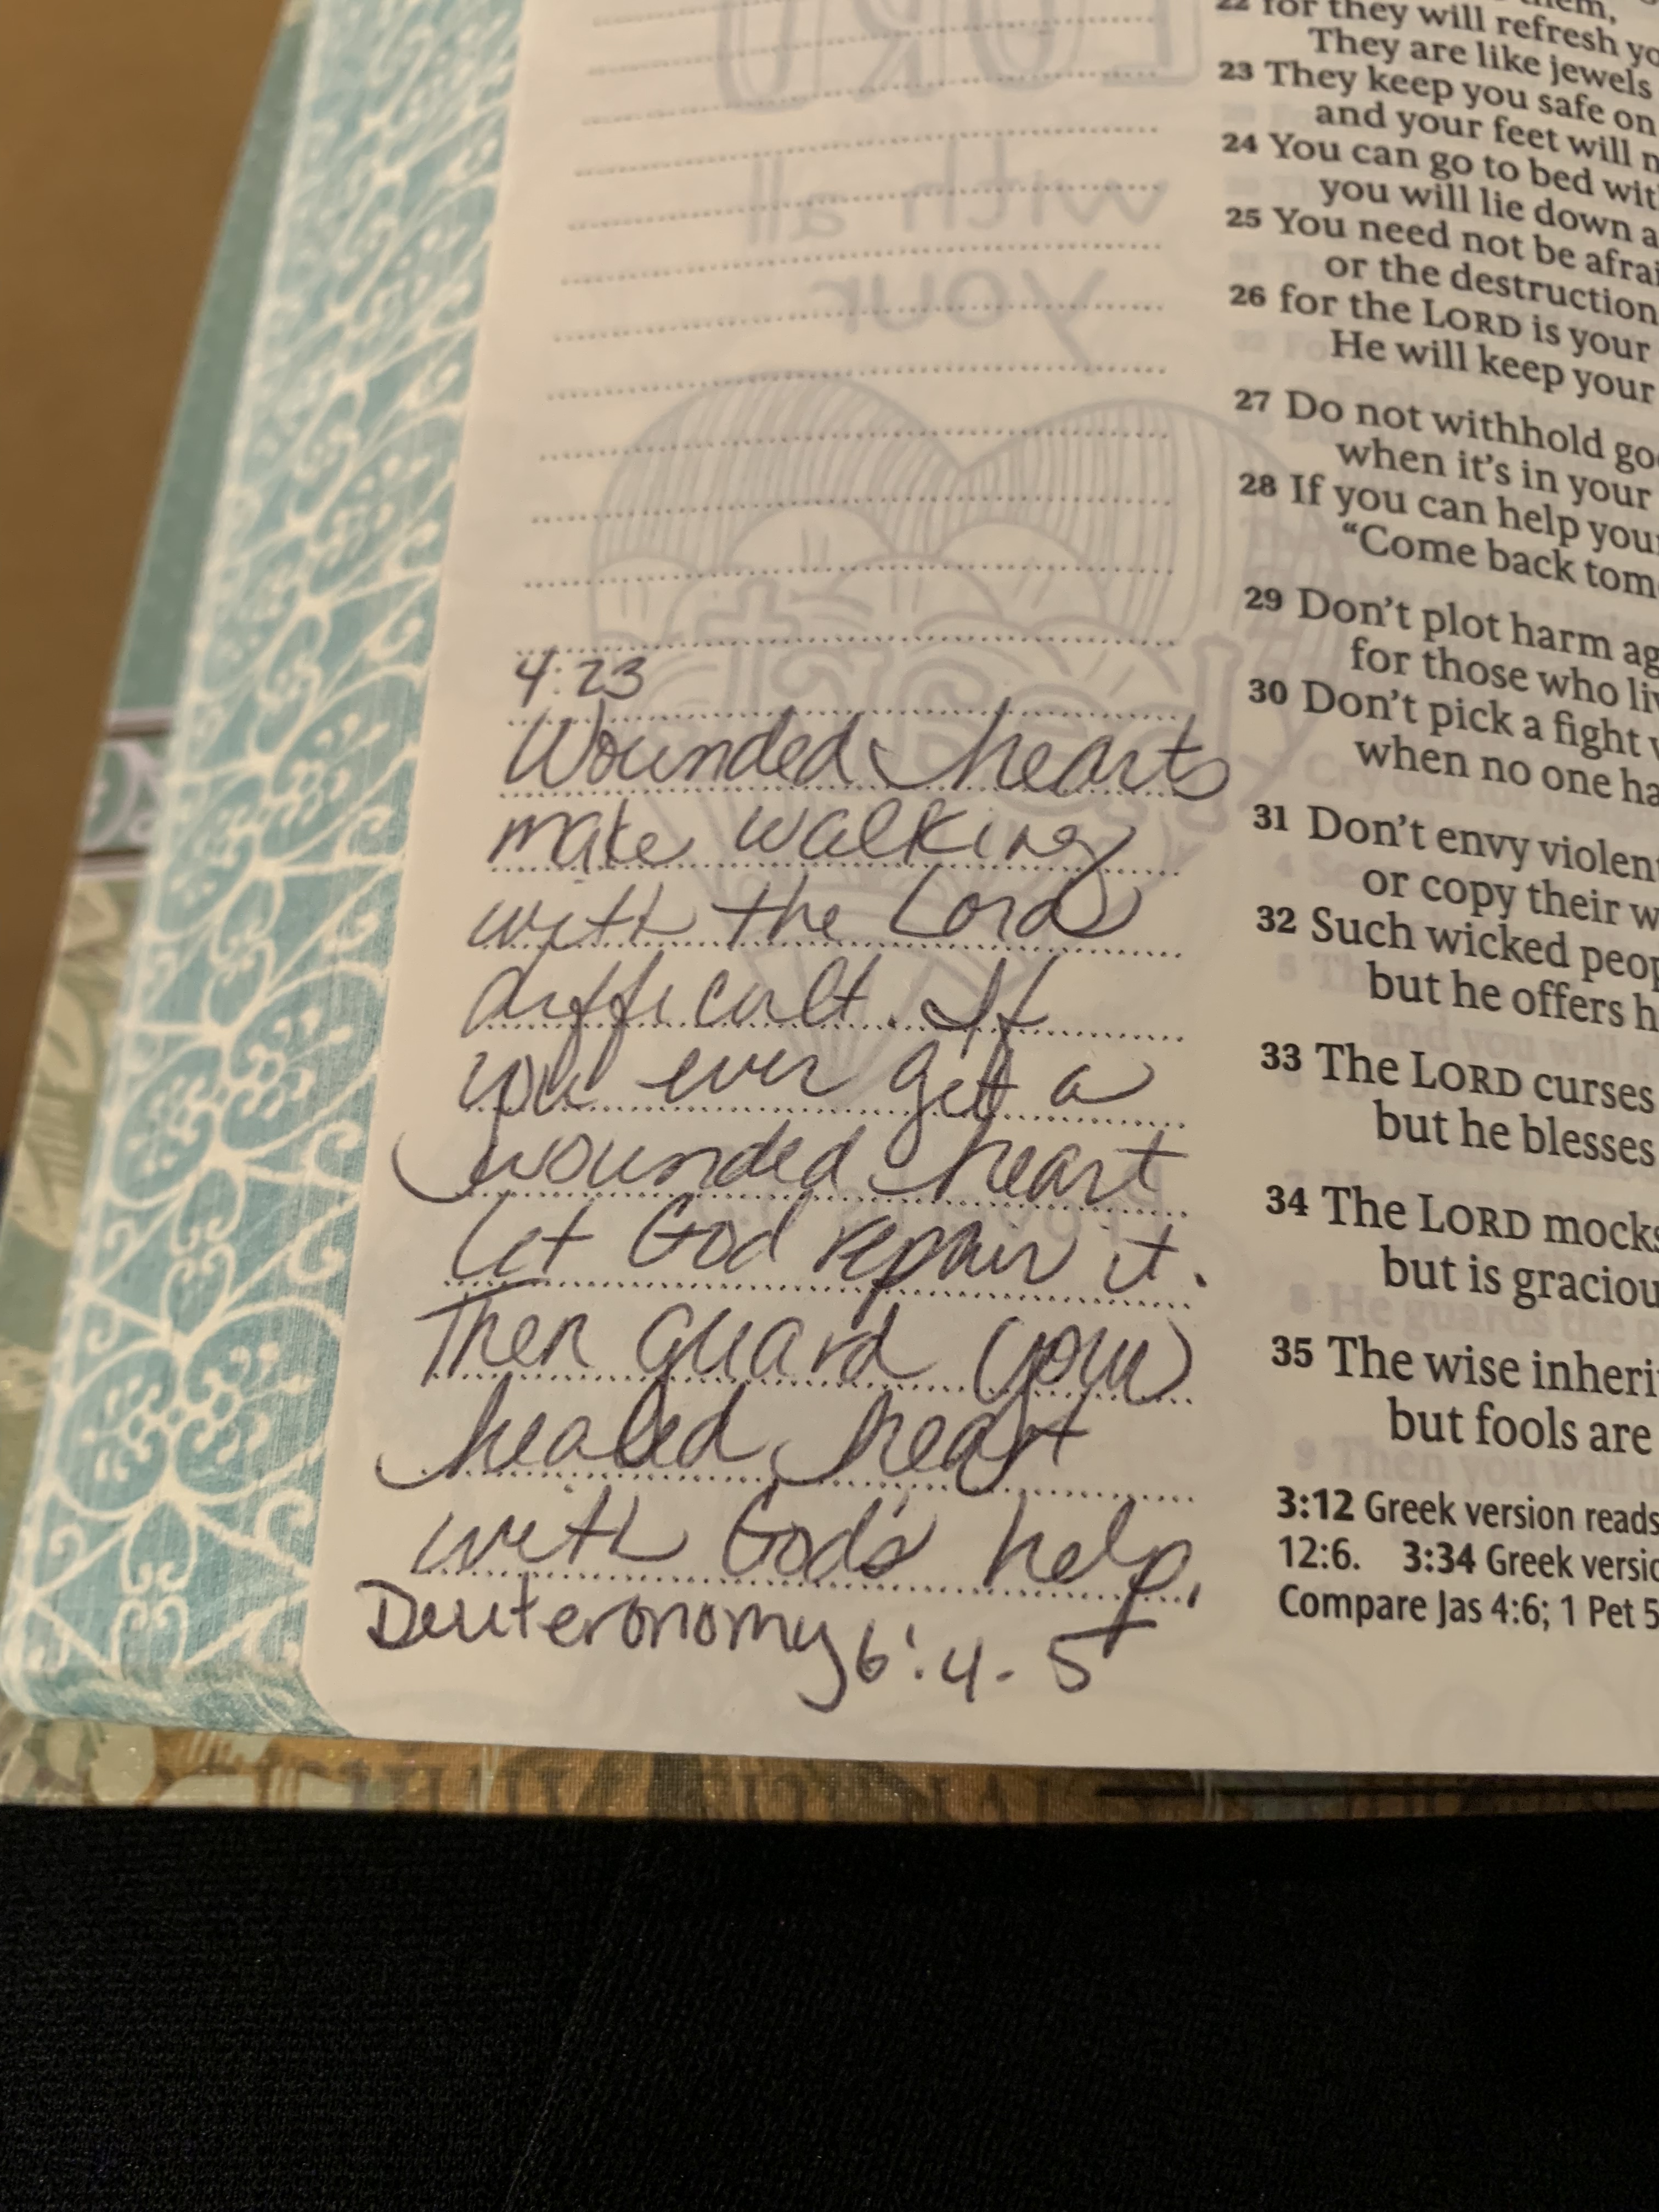 4:23
Wounded hearts
make walking
with the Lord
difficult. If
you ever get a
wounded heart
let God repair it.
Then guard your
healed heart
with God's help.
Deuteronomy 6:4-5
22 for they will refresh
They are like jewels
23 They keep you safe on
and your feet will
24 You can go to bed
you will lie down
25 You need not be
or the destruction
26 for the LORD is your
He will keep your
27 Do not withhold
when it's in your
28 If you can help
"Come back
29 Don't plot harm
for those who
30 Don't pick a fight
when no one
31 Don't envy
or copy their
32 Such wicked
but he offers
33 The LORD curses
but he blesses
34 The LORD mocks
but is
35 The wise
but fools are
3:12 Greek version reads
12:6. 3:34 Greek
Compare Jas 4:6; 1 Pet 5
with all
your